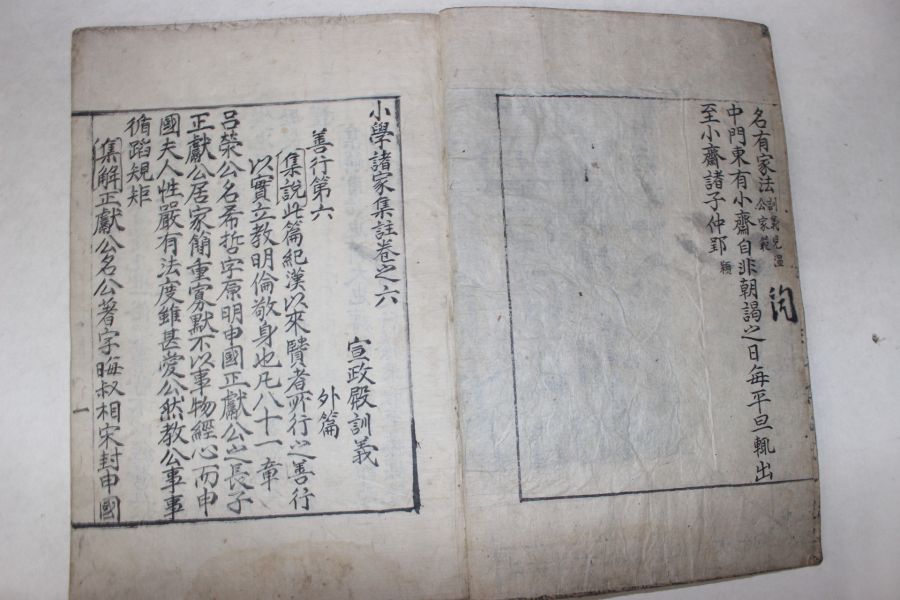 名有家法訓義見溫公家範
中門東有小齋自非朝謁之日每平旦輒出
至小齋諸子仲郢
小學諸家集註卷之六
宣政殿訓義
外篇
善行第六
集說此篇紀漢以來賢者所行之善行
以實立教明倫敬身也凡八十一章
呂滎公名希哲字原明申國正獻公之長子
正獻公居家簡重寡默不以事物經心而申
國夫人性嚴有法度雖甚愛公然教公事事
循蹈規矩
集解正獻公名公著字晦叔相宋封申國
一